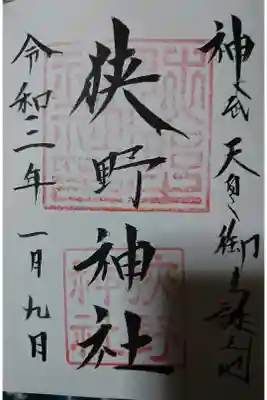 神武天皇御生誕之地
狭野神社
令和三年一月九日